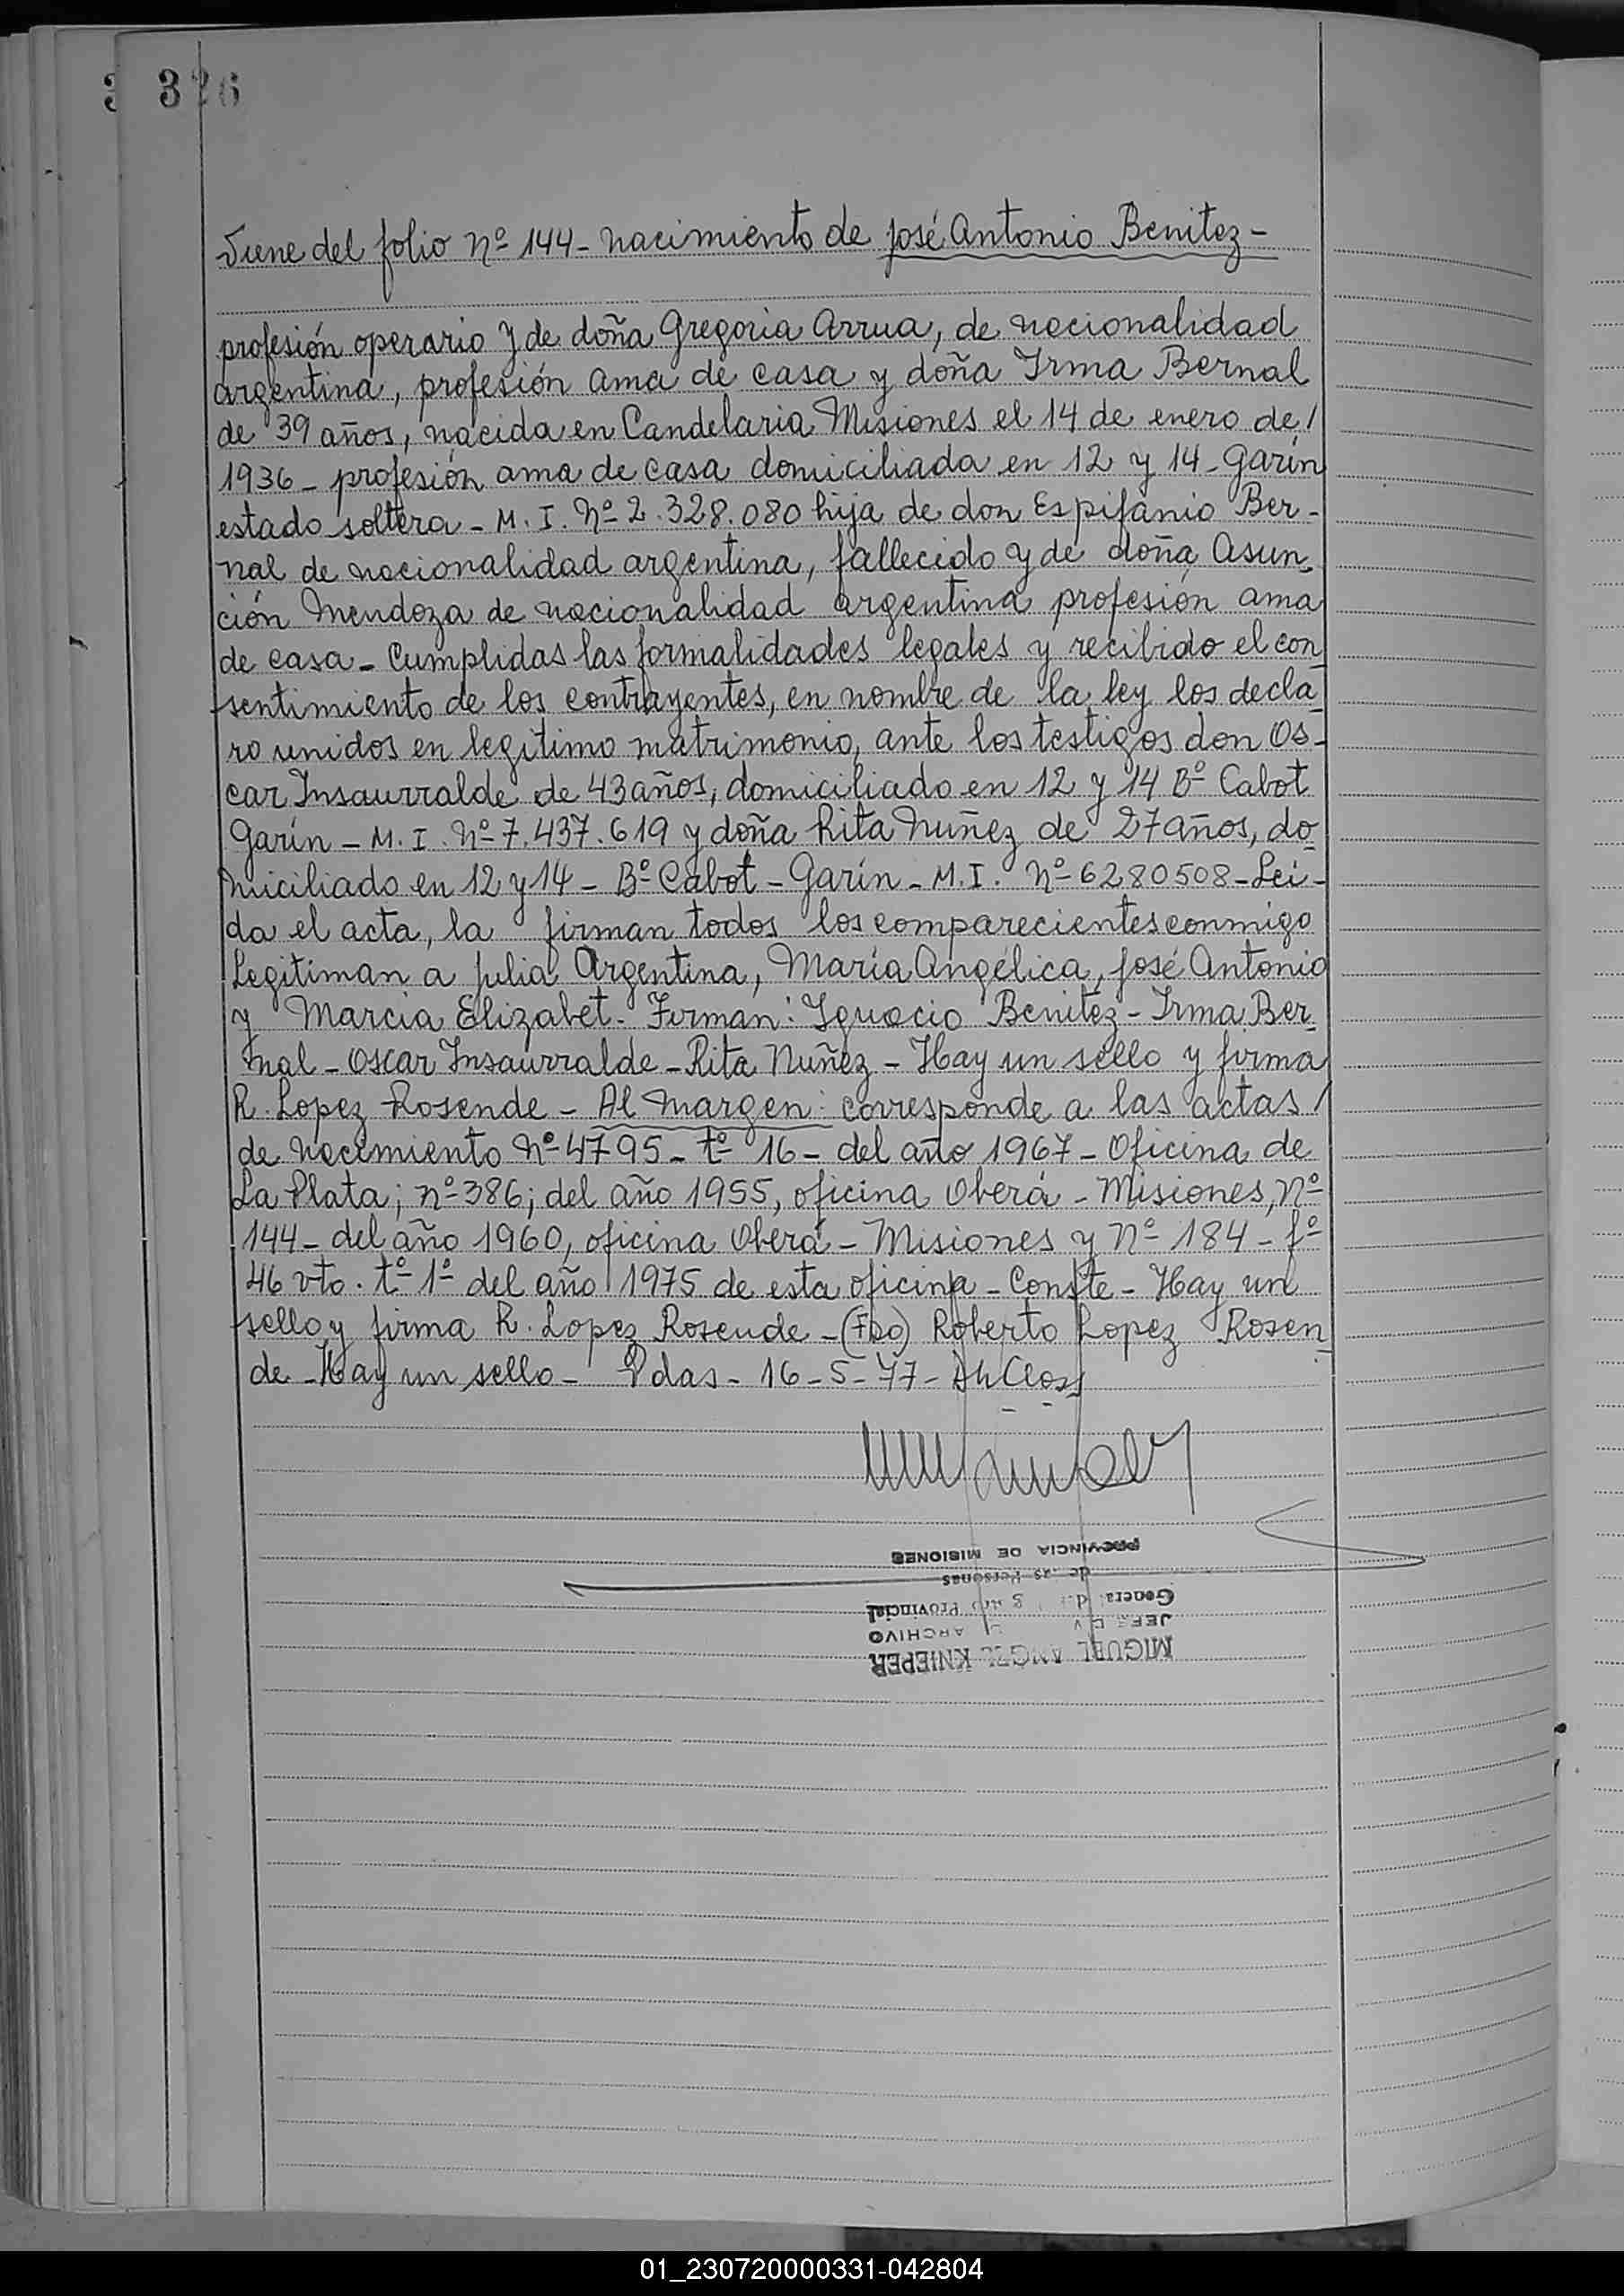 326
Viene del folio Nº 144 - nacimiento de José Antonio Benitez -
profesión operario y de doña Gregoria Arrua, de nacionalidad
argentina, profesión ama de casa y doña Irma Bernal
de 39 años, nacida en Candelaria Misiones el 14 de enero de /
1936 - profesión ama de casa domiciliada en 12 y 14 - Garín
estado soltera - M. I. Nº 2.328.080 hija de don Espifanio Ber-
nal de nacionalidad argentina, fallecido y de doña Asun-
ción Mendoza de nacionalidad argentina profesión ama
de casa - Cumplidas las formalidades legales y recibido el con-
sentimiento de los contrayentes, en nombre de la ley los decla-
ro unidos en legítimo matrimonio, ante los testigos don Os-
car Insaurralde de 43 años, domiciliado en 12 y 14 Bº Cabot
Garín - M. I. Nº 7.437.619 y doña Rita Nuñez de 27 años, do-
miciliado en 12 y 14 - Bº Cabot - Garín - M. I. Nº 6280508 - Lei-
da el acta, la firman todos los comparecientes conmigo
Legitiman a Julia Argentina, María Angélica, José Antonio
y Marcia Elizabet. Firman: Ignacio Benitez - Irma Ber-
nal - Oscar Insaurralde - Rita Nuñez - Hay un sello y firma
R. Lopez Rosende - Al margen: corresponde a las actas /
de nacimiento Nº 4795 - tº 16 - del año 1967 - Oficina de
La Plata; nº 386; del año 1955, oficina Oberá - Misiones, Nº
144 - del año 1960, oficina Oberá - Misiones y Nº 184 - fº
46 vto. tº 1º del año 1975 de esta oficina - Conste - Hay un
sello y firma R. Lopez Rosende - (Fdo) Roberto Lopez Rosen-
de - Hay un sello - Pdas - 16 - 5 - 77 -
MIGUEL ANGEL KNIEPER
ARCHIVO
General Provincial
de las Personas
PROVINCIA DE MISIONES
01_230720000331-042804